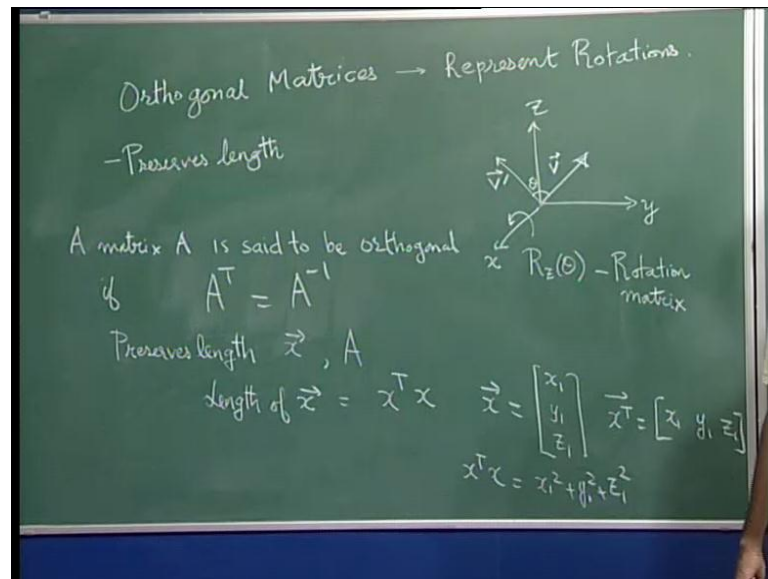 Orthogonal Matrices → Represent Rotations.
- Preserves length
z
V⃗'
θ
V⃗
y
x
R_z(θ) - Rotation matrix
A matrix A is said to be orthogonal
if A^T = A^-1
Preserves length x⃗ , A
Length of x⃗ = x^T x x⃗ = [x₁ y₁ z₁] x⃗^T = [x₁ y₁ z₁]
x^T x = x₁² + y₁² + z₁²